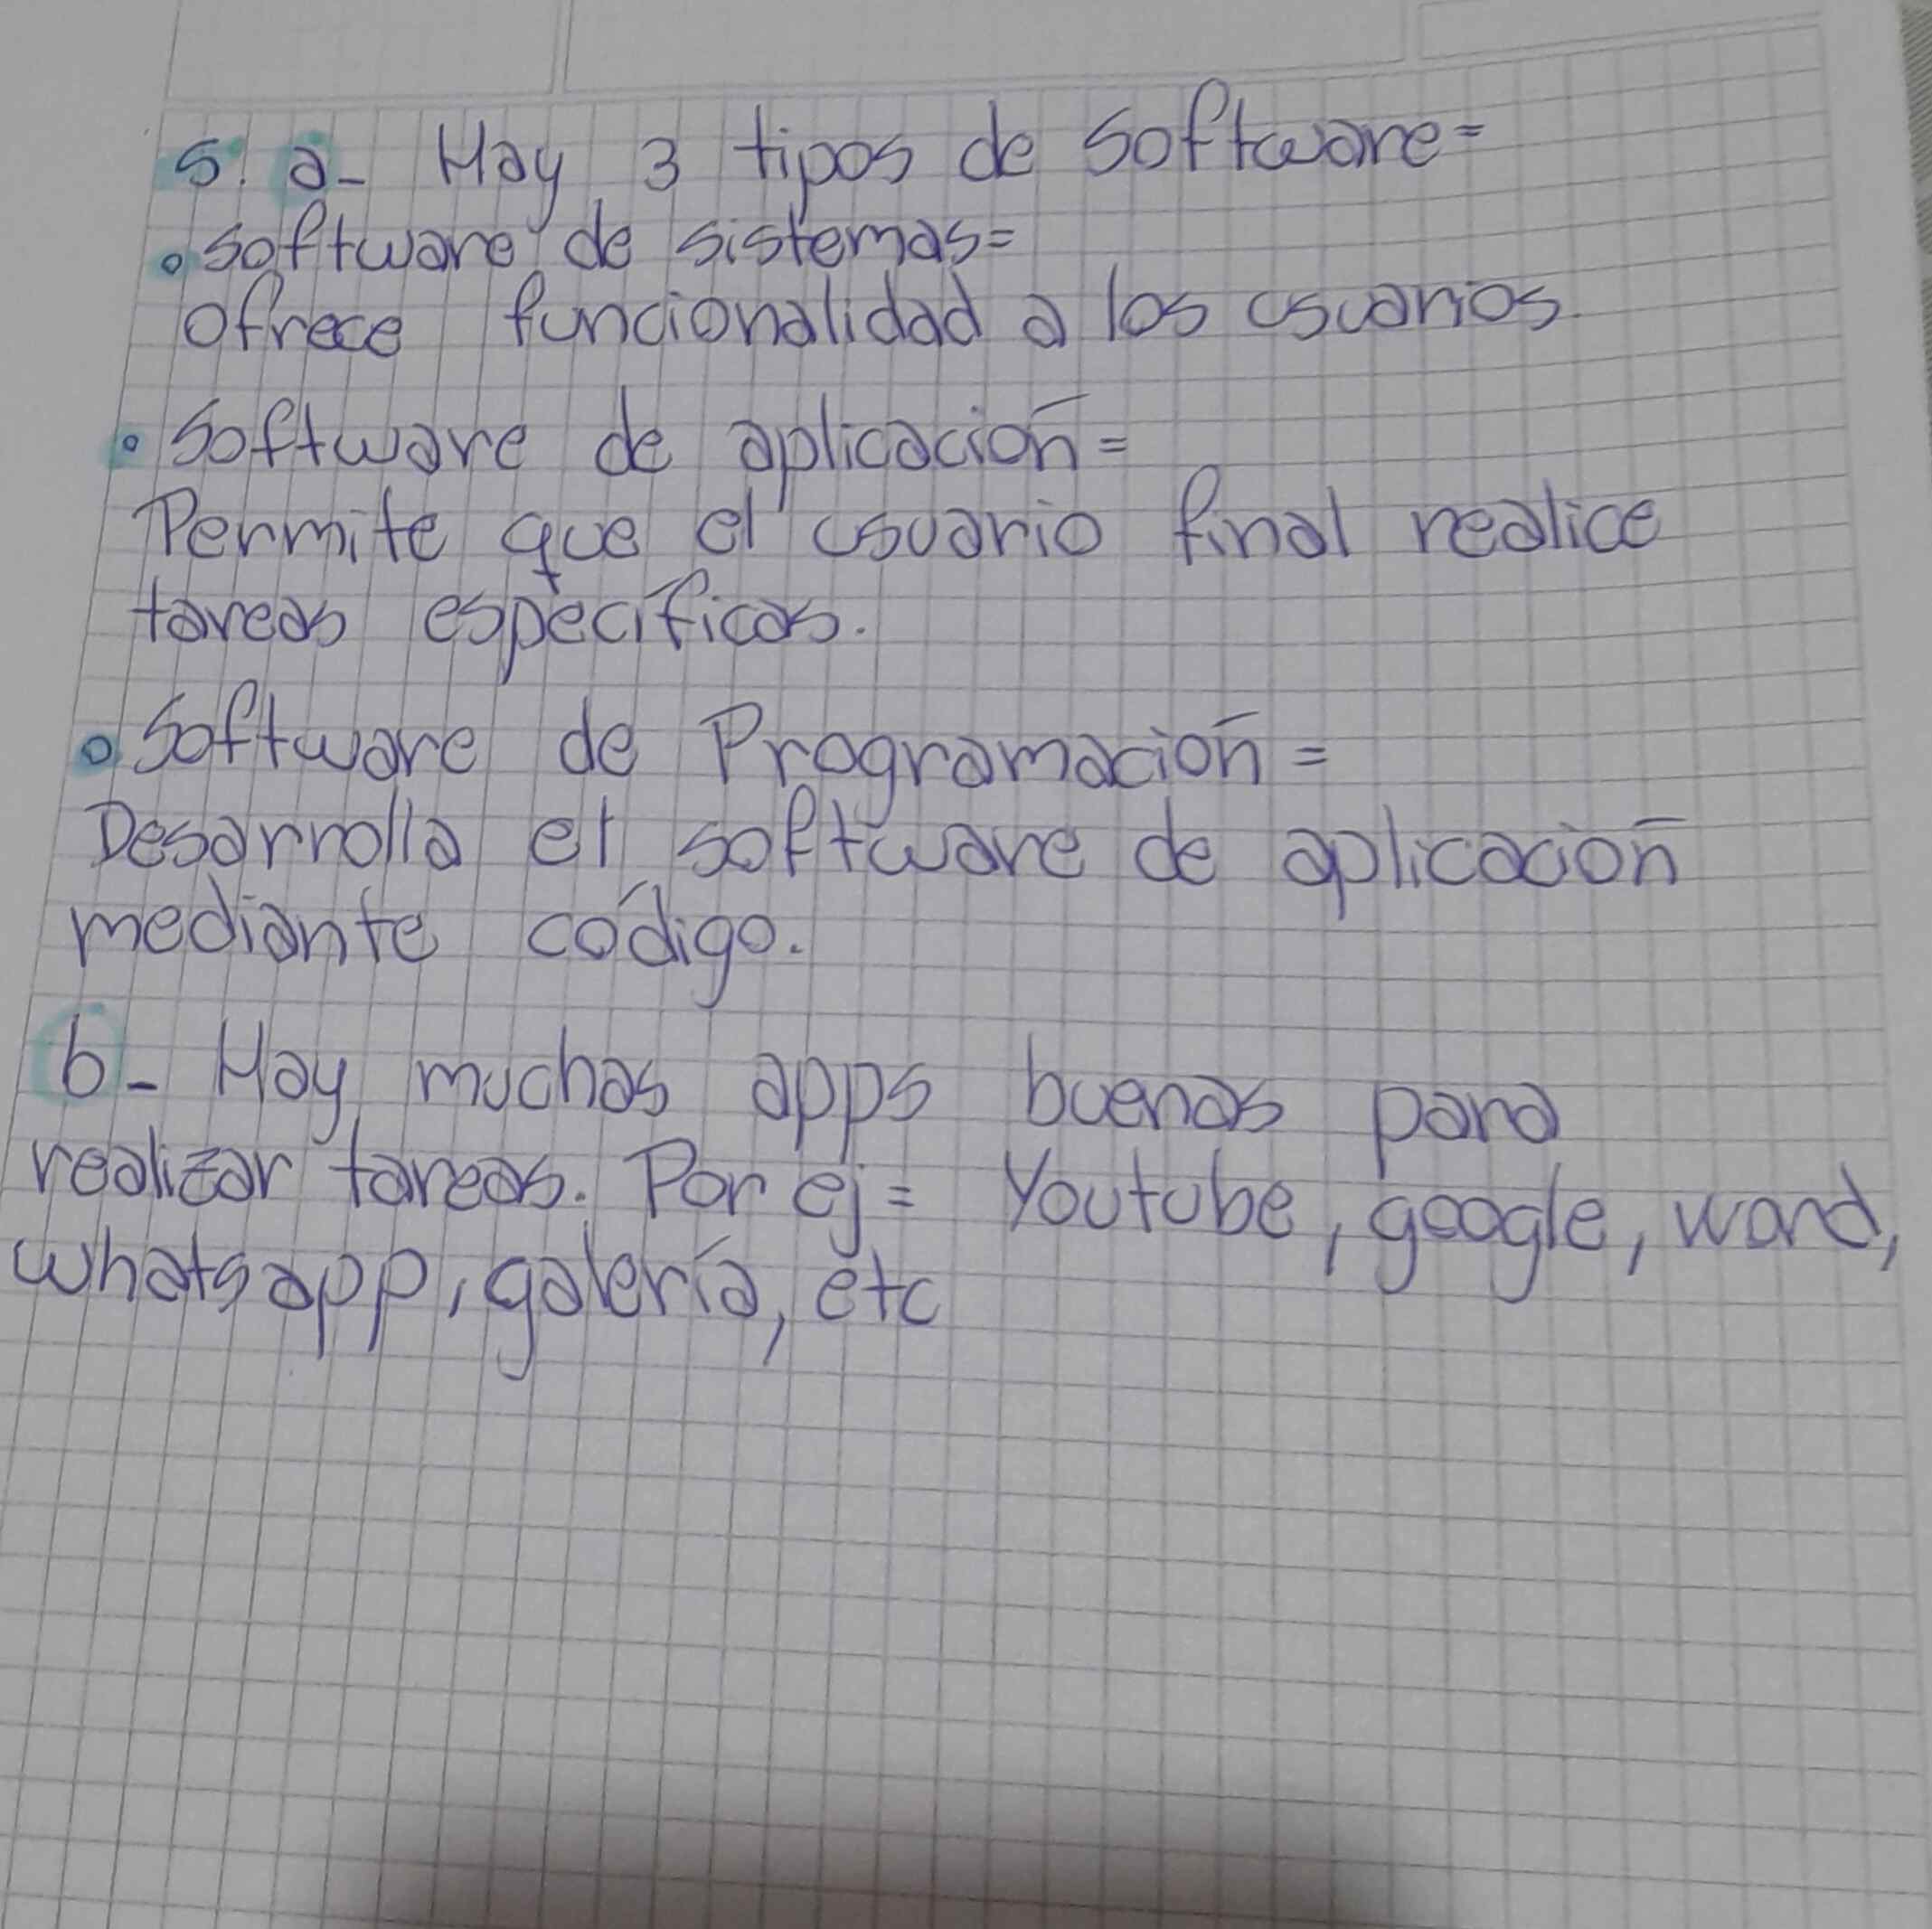 5. a- Hay 3 tipos de Software=
• Software de sistemas=
Ofrece funcionalidad a los usuarios.
• Software de aplicación=
Permite que el usuario final realice
tareas específicas.
• Software de Programación=
Desarrolla el software de aplicación
mediante código.
b- Hay muchas apps buenas para
realizar tareas. Por ej= Youtube, google, word,
whatsapp, galería, etc